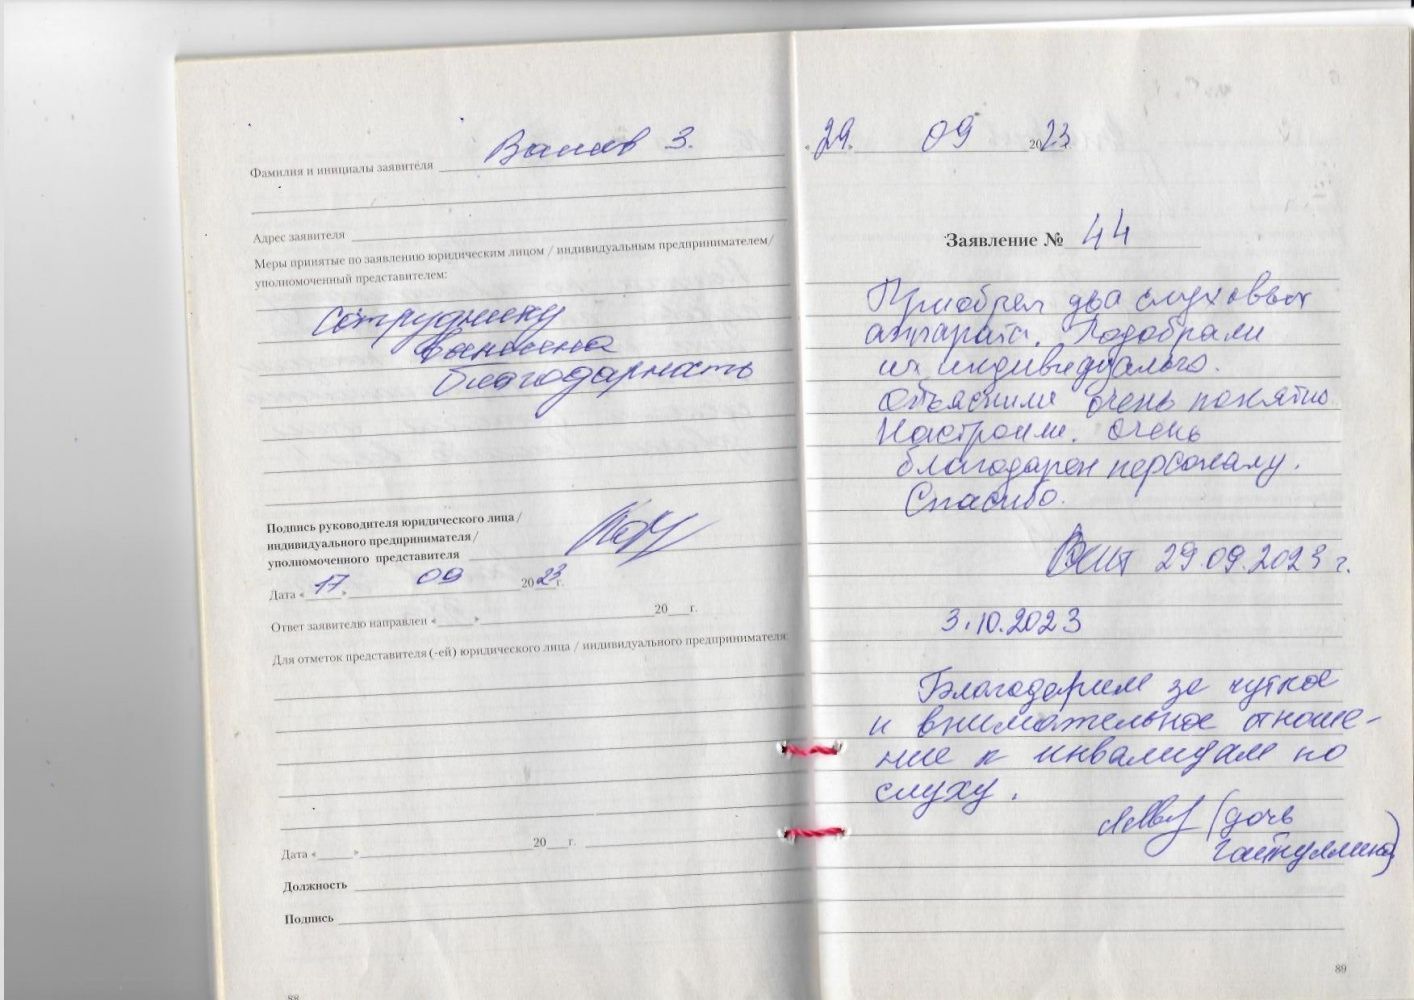 Фамилия и инициалы заявителя Валиев З.
Адрес заявителя
Меры принятые по заявлению юридическим лицом / индивидуальным предпринимателем/
уполномоченный представителем:
Сотруднику
вынесена
благодарность
Подпись руководителя юридического лица /
индивидуального предпринимателя /
уполномоченного представителя
Дата «17» 09 2023 г.
Ответ заявителю направлен «____» 20___г.
Для отметок представителя (-ей) юридического лица / индивидуального предпринимателя:
Дата «____» 20___г.
Должность
Подпись
88
«29. 09 2023
Заявление № 44
Приобрел два слуховых
аппарата. Подобрали
их индивидуально.
Объяснили очень понятно.
Настроили. очень
благодарен персоналу.
Спасибо.
29.09.2023 г.
3.10.2023
Благодарим за чуткое
и внимательное отноше-
ние к инвалидам по
слуху.
(дочь
Гайнуллина)
89